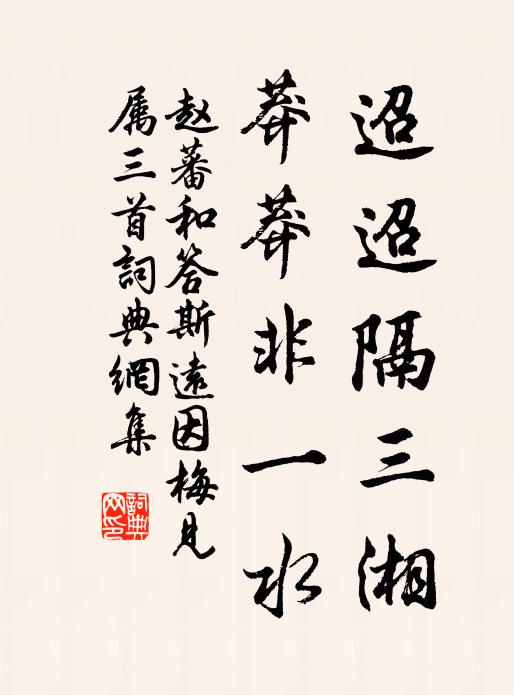 迢迢隔三湘
莽莽非一水
赵蕃和答斯遠因梅見
属三首詞典網集
詞典
网印